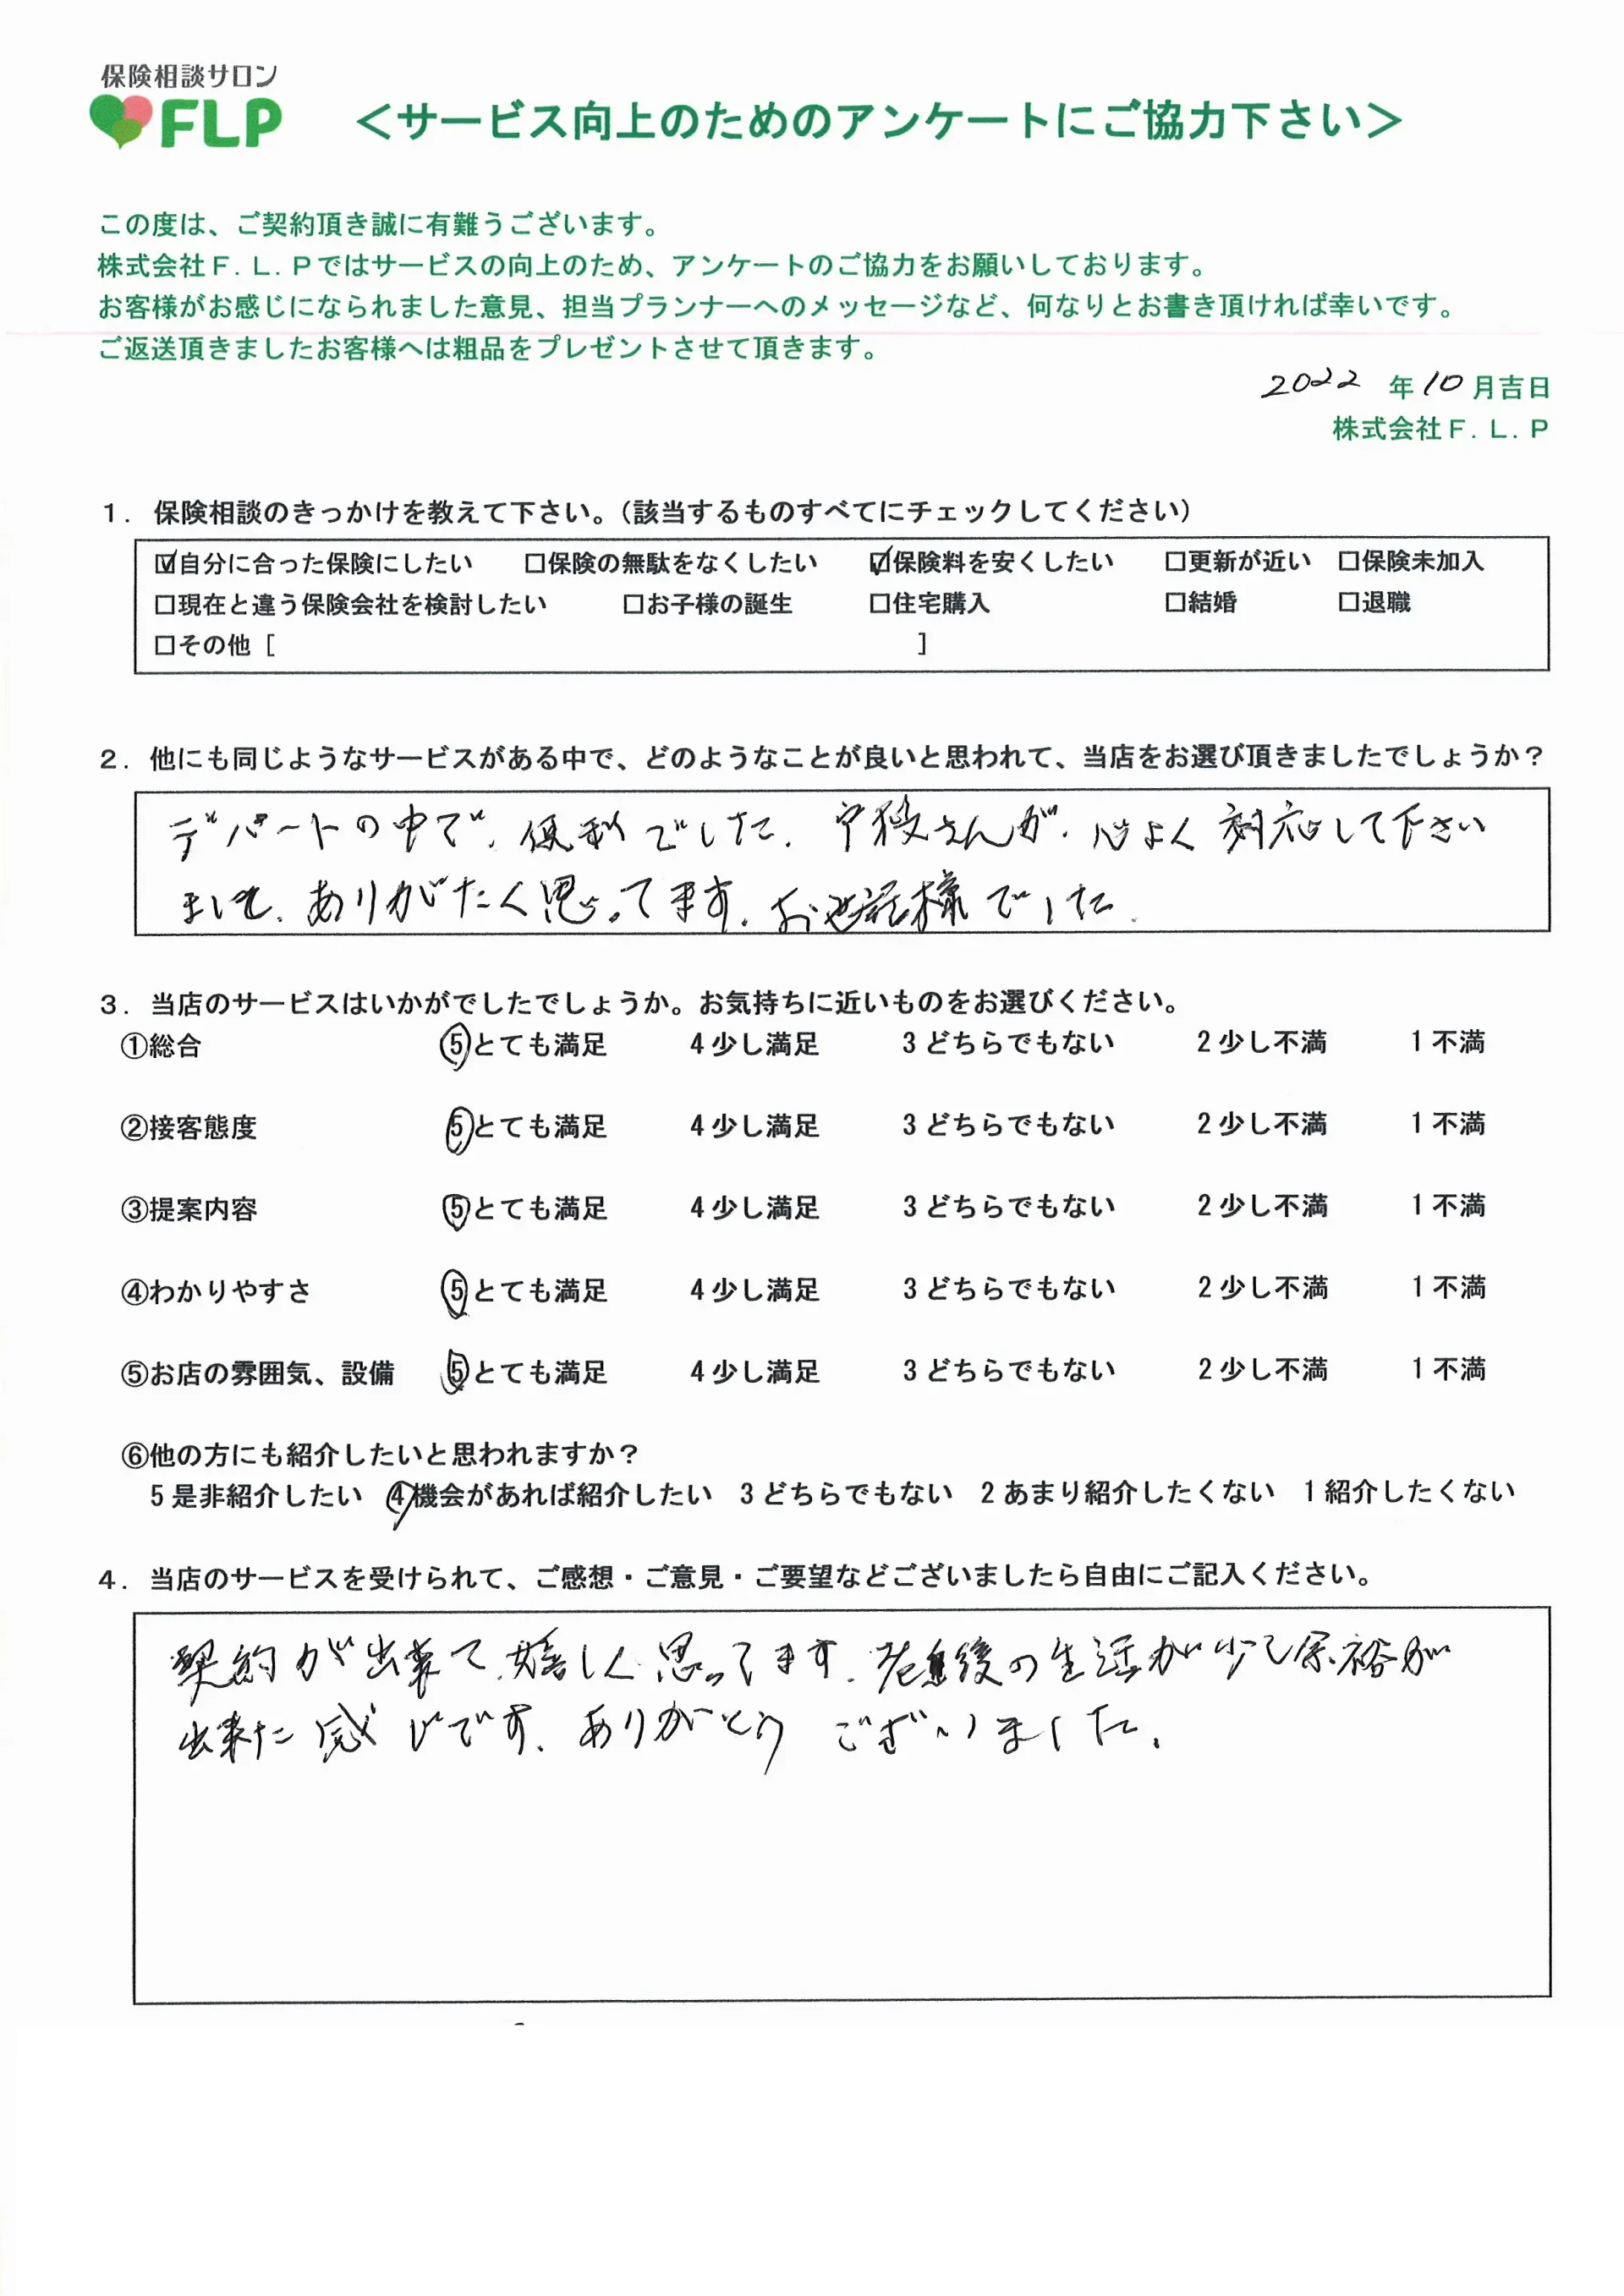 保険相談サロン
FLP
＜サービス向上のためのアンケートにご協力下さい＞
この度は、ご契約頂き誠に有難うございます。
株式会社Ｆ．Ｌ．Ｐではサービスの向上のため、アンケートのご協力をお願いしております。
お客様がお感じになられました意見、担当プランナーへのメッセージなど、何なりとお書き頂ければ幸いです。
ご返送頂きましたお客様へは粗品をプレゼントさせて頂きます。
2022 年 10 月吉日
株式会社Ｆ．Ｌ．Ｐ
１．保険相談のきっかけを教えて下さい。（該当するものすべてにチェックしてください）
☑自分に合った保険にしたい □保険の無駄をなくしたい ☑保険料を安くしたい □更新が近い □保険未加入
□現在と違う保険会社を検討したい □お子様の誕生 □住宅購入 □結婚 □退職
□その他［ ］
２．他にも同じようなサービスがある中で、どのようなことが良いと思われて、当店をお選び頂きましたでしょうか？
デパートの中で、便利でした。さんが、心よく対応して下さい
まして、ありがたく思ってます。お世話様でした。
３．当店のサービスはいかがでしたでしょうか。お気持ちに近いものをお選びください。
①総合 5とても満足 4少し満足 3どちらでもない 2少し不満 1不満
②接客態度 5とても満足 4少し満足 3どちらでもない 2少し不満 1不満
③提案内容 5とても満足 4少し満足 3どちらでもない 2少し不満 1不満
④わかりやすさ 5とても満足 4少し満足 3どちらでもない 2少し不満 1不満
⑤お店の雰囲気、設備 5とても満足 4少し満足 3どちらでもない 2少し不満 1不満
⑥他の方にも紹介したいと思われますか？
5是非紹介したい 4機会があれば紹介したい 3どちらでもない 2あまり紹介したくない 1紹介したくない
４．当店のサービスを受けられて、ご感想・ご意見・ご要望などございましたら自由にご記入ください。
契約が出来て、嬉しく思ってます。老後の生活が少し余裕が
出来た感じです。ありがとうございました。